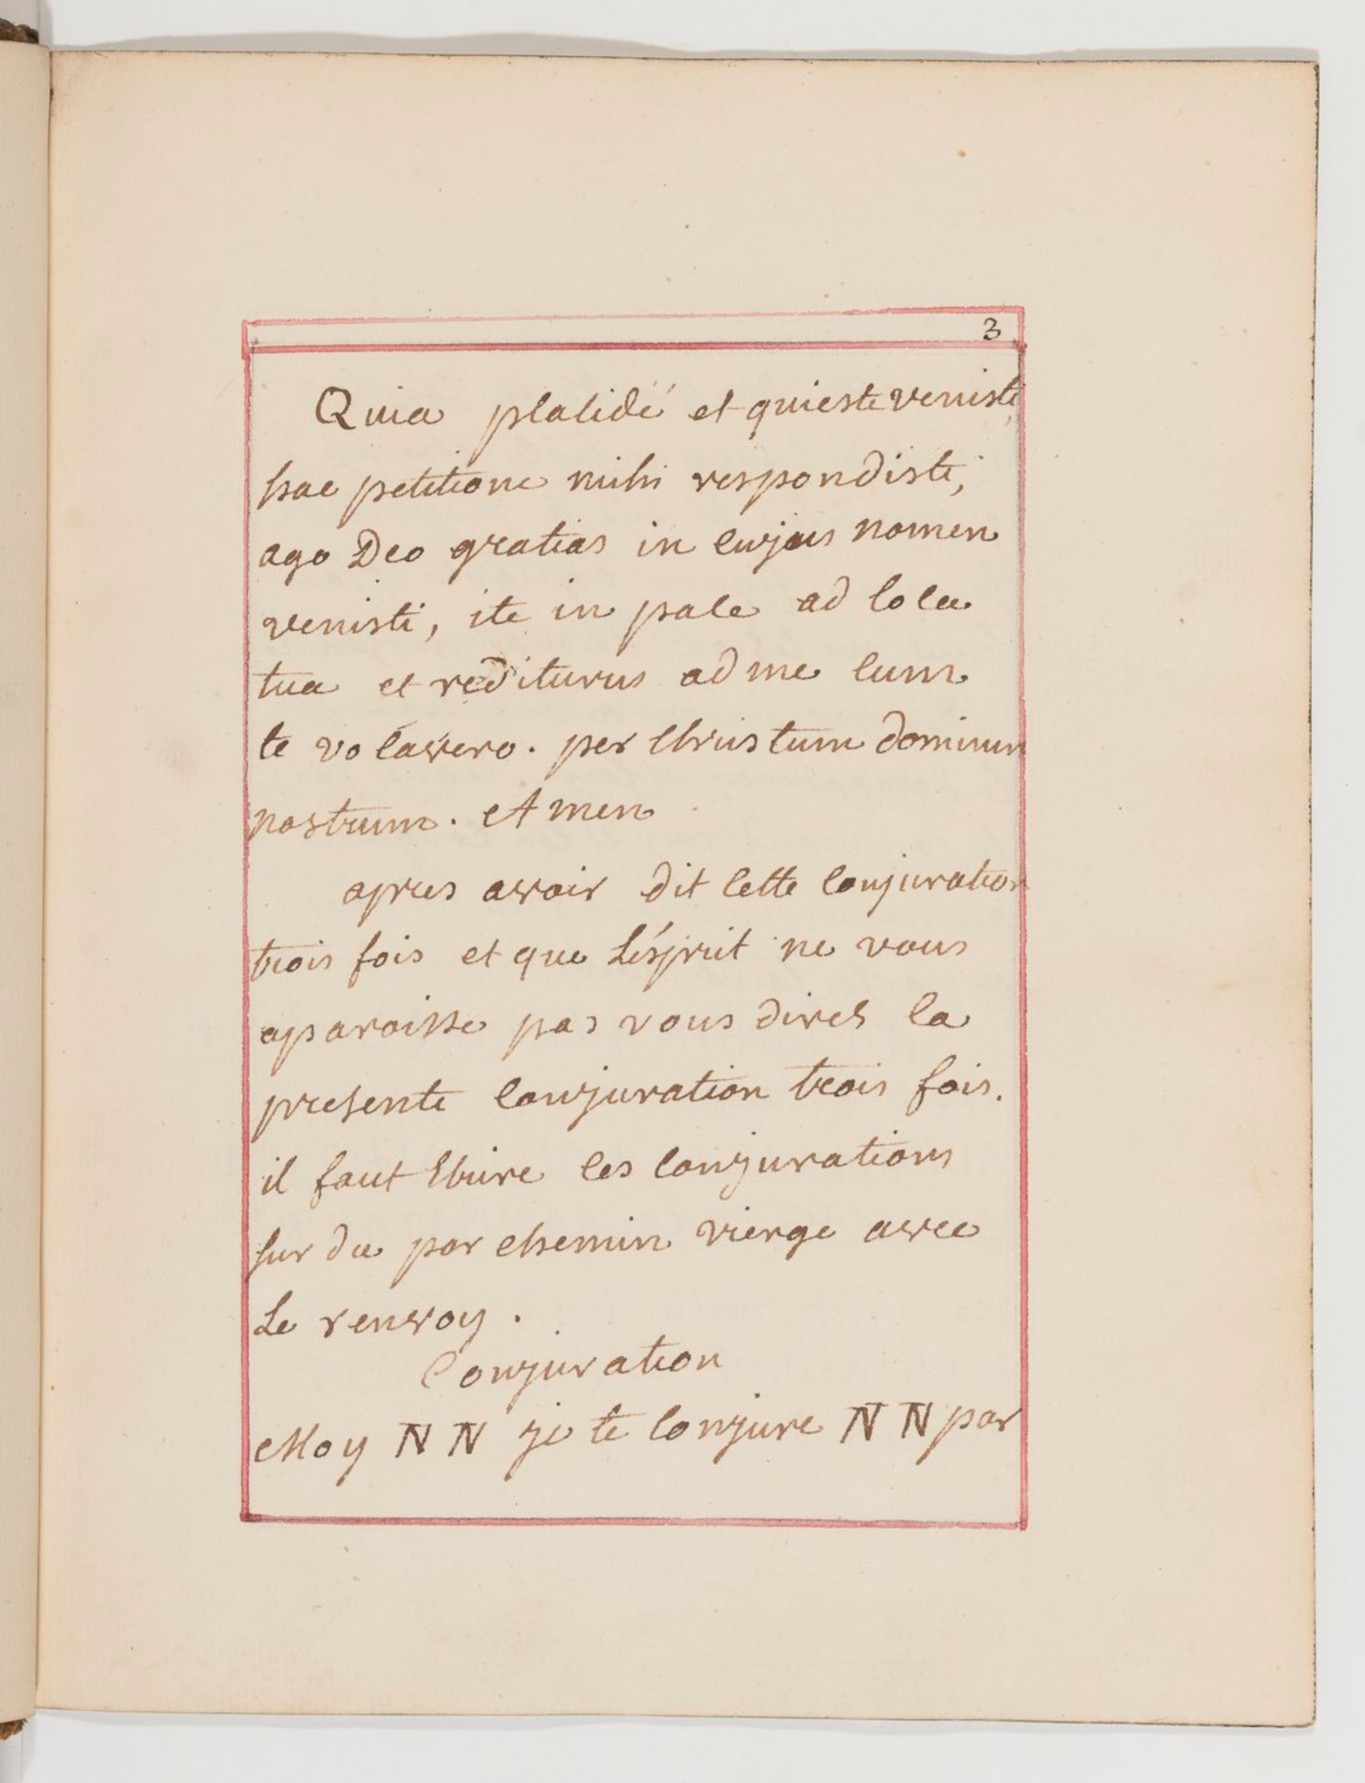 3
Quia placidé et quieste veniste,
hac petitione mihi respondisti,
ago Deo gratias in cujus nomen
venisti, ite in pace ad loca
tua et rediturus ad me cum
te vocavero. per Christum dominum
nostrum. Amen
apres avoir dit cette conjuration
trois fois et que L'ésprit ne vous
aparoisse pas vous direz la
presente conjuration trois fois.
il faut Ecrire les conjurations
sur du parchemin vierge avec
Le renvoy.
Conjuration
Moy N N je te conjure N N par